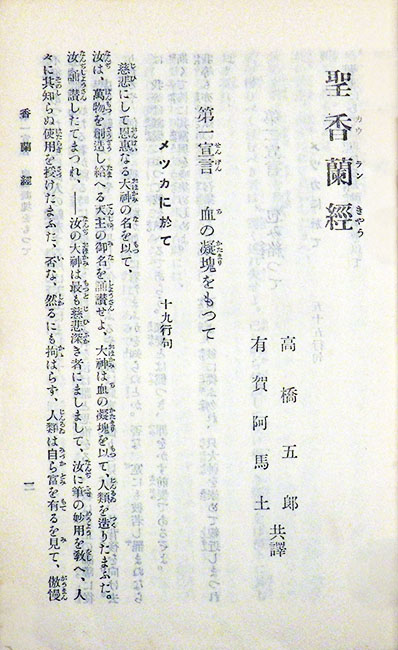 聖香蘭經
高橋五郎
有賀阿馬土 共譯
第一宣言 血の凝塊をもつて
メツカに於て 十九行句
慈悲にして恩惠なる大神の名を以て、
汝は、萬物を創造し給へる天主の御名を誦讃せよ、大神は血の凝塊を以て、人類を造りたまふた。
汝誦讃したてまつれ、――汝の大神は最も慈悲深き者にましまして、汝に筆の妙用を敎へ、人
々に其知らぬ使用を授けたまふた、否な、然るにも拘はらず、人類は自ら富を有るを見て、傲慢
香蘭經 一